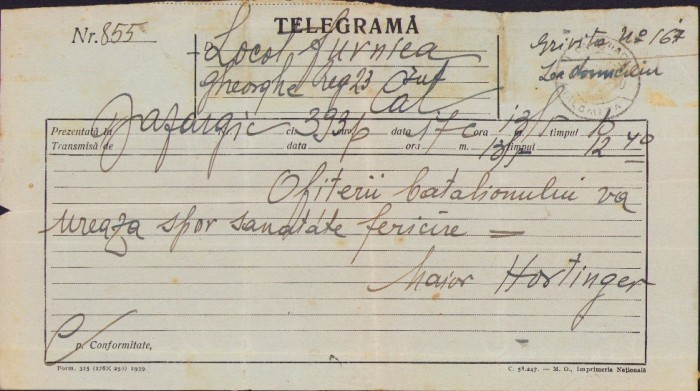 TELEGRAMĂ
Nr. 855
Locot Furnica
Gheorghe Reg 23 Inf
Cal
Grivita No 167
La domiciliu
Prezentată la Bazargic cu 393 cuv. data 17 ora 13/5 timpul 10
Transmisă de data ora m. 13/5 timpul 12 40
Ofiterii batalionului va
ureaza spor sanatate fericire =
Maior Hortinger
p. Conformitate,
Form. 325 (176X 250) 1939
C. 58.247. — M. O., Imprimeria Națională